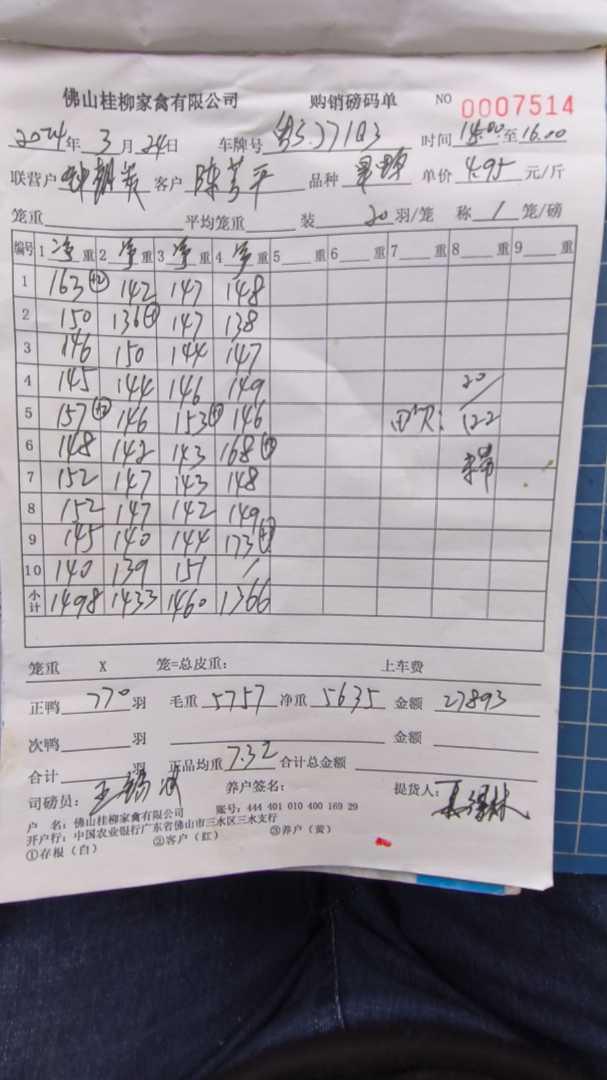 佛山桂柳家禽有限公司 购销磅码单 NO 0007514
2024年 3月 24日 车牌号 J7103 时间 14:00 至 16:00
联营户 客户 陈 平 品种 单价 4.95 元/斤
笼重 平均笼重 装 20 羽/笼 称 1 笼/磅
编号 1 净重 2 净重 3 净重 4 净重 5 重 6 重 7 重 8 重 9 重
1 163 142 147 148
2 150 136 147 138
3 146 150 144 147
4 145 144 146 149 20/
5 157 146 153 146 122
6 148 142 143 168
7 152 147 143 148
8 152 147 142 149
9 145 140 144 173
10 140 139 151 /
小计 1498 1433 1460 1366
笼重 X 笼=总皮重: 上车费
正鸭 770 羽 毛重 5757 净重 5635 金额 27893
次鸭 羽 金额
合计 羽 正品均重 7.32 合计总金额
司磅员: 养户签名: 提货人:
户 名: 佛山桂柳家禽有限公司 账号: 444 401 010 400 169 29
开户行: 中国农业银行广东省佛山市三水区三水支行
①存根(白) ②客户(红) ③养户(黄)